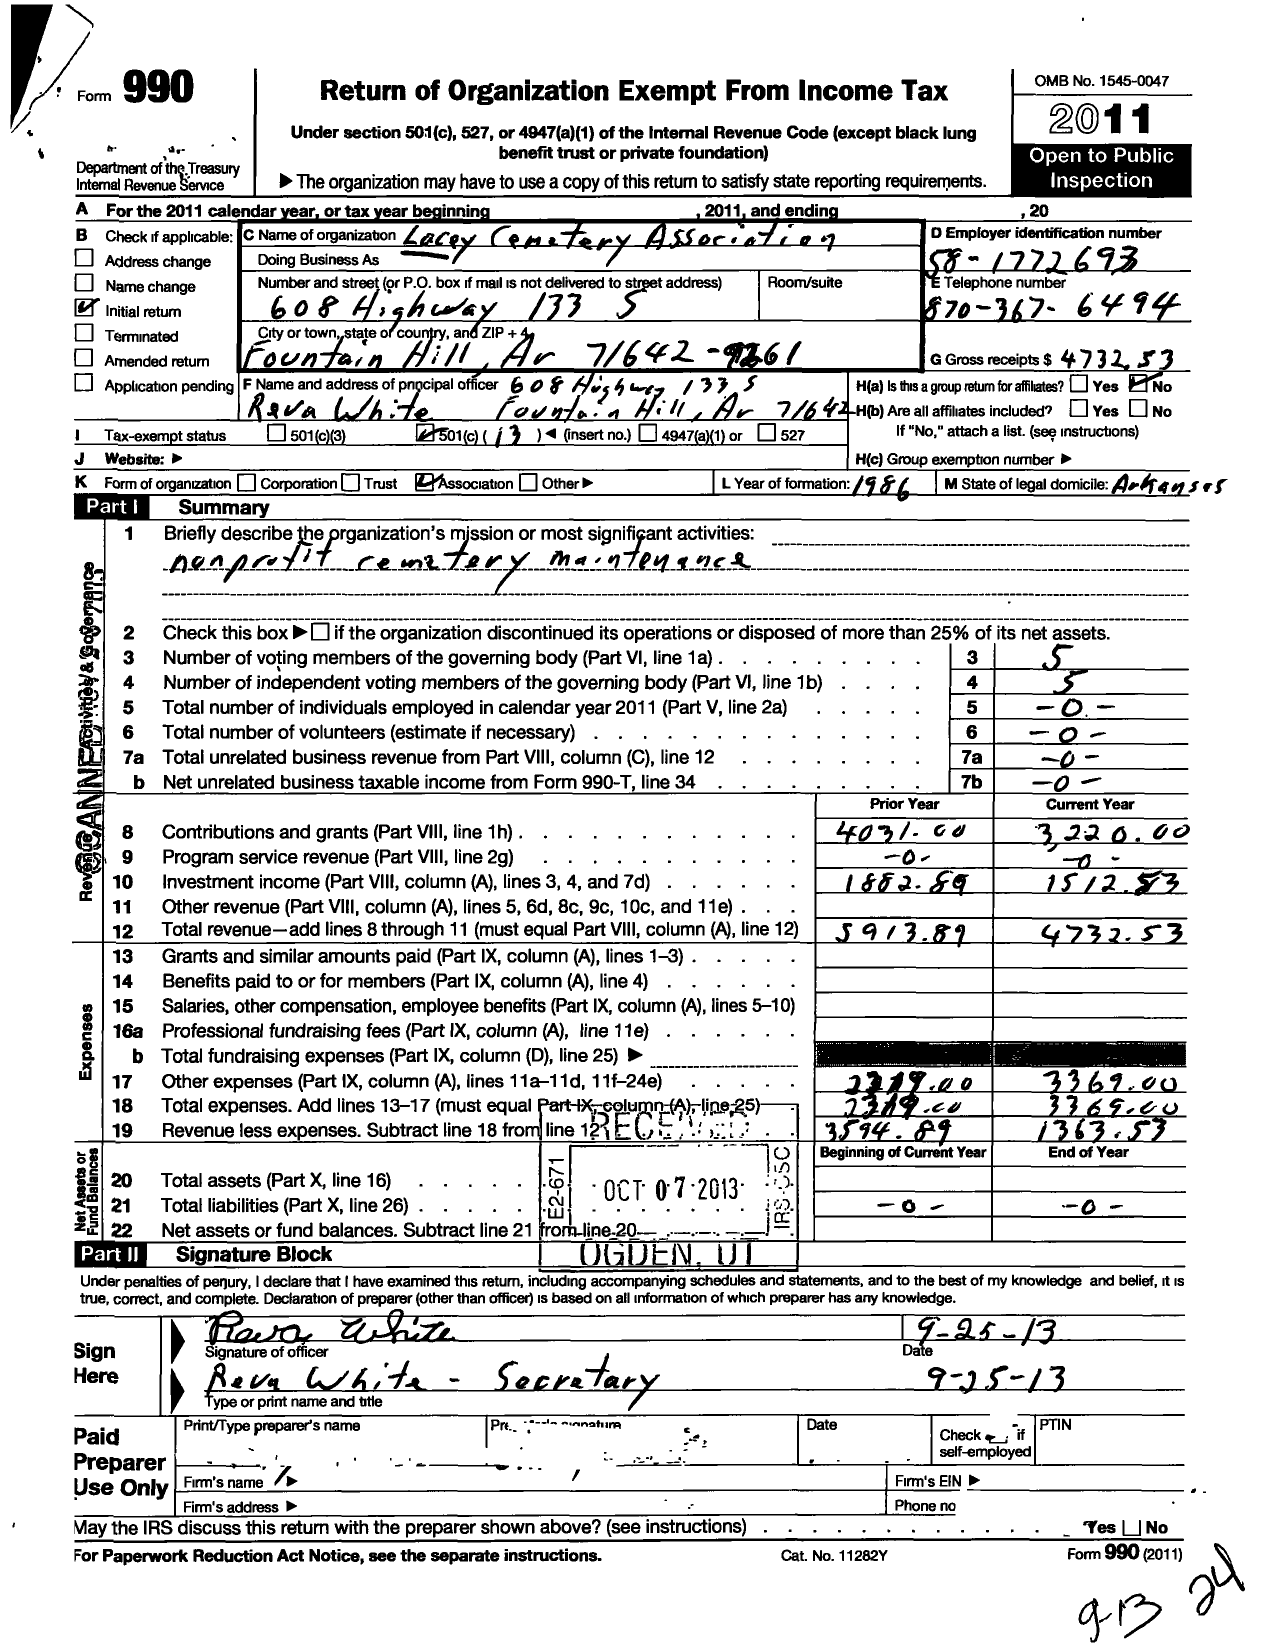 Form 990
Department of the Treasury
Internal Revenue Service
Return of Organization Exempt From Income Tax
Under section 501(c), 527, or 4947(a)(1) of the Internal Revenue Code (except black lung
benefit trust or private foundation)
▶ The organization may have to use a copy of this return to satisfy state reporting requirements.
OMB No. 1545-0047
2011
Open to Public
Inspection
A For the 2011 calendar year, or tax year beginning , 2011, and ending , 20
B Check if applicable:
Address change
Name change
Initial return
Terminated
Amended return
Application pending
C Name of organization Lacey Cemetery Association
Doing Business As
Number and street (or P.O. box if mail is not delivered to street address) Room/suite
608 Highway 133 S
City or town, state or country, and ZIP + 4
Fountain Hill, Ar 71642-9261
D Employer identification number
58-1772693
E Telephone number
870-367-6494
G Gross receipts $ 4732.53
F Name and address of principal officer 608 Highway 133 S
Reva White Fountain Hill, Ar 71642
H(a) Is this a group return for affiliates? Yes No
H(b) Are all affiliates included? Yes No
If "No," attach a list. (see instructions)
H(c) Group exemption number ▶
I Tax-exempt status 501(c)(3) 501(c) ( 13 ) ◀ (insert no.) 4947(a)(1) or 527
J Website: ▶
K Form of organization Corporation Trust Association Other ▶
L Year of formation: 1986
M State of legal domicile: Arkansas
Part I Summary
1 Briefly describe the organization's mission or most significant activities:
nonprofit cemetery maintenance
2 Check this box ▶ if the organization discontinued its operations or disposed of more than 25% of its net assets.
3 Number of voting members of the governing body (Part VI, line 1a) 3 5
4 Number of independent voting members of the governing body (Part VI, line 1b) 4 5
5 Total number of individuals employed in calendar year 2011 (Part V, line 2a) 5 -0-
6 Total number of volunteers (estimate if necessary) 6 -0-
7a Total unrelated business revenue from Part VIII, column (C), line 12 7a -0-
b Net unrelated business taxable income from Form 990-T, line 34 7b -0-
Activities & Governance
SCANNED
Prior Year Current Year
8 Contributions and grants (Part VIII, line 1h) 4031.00 3,220.00
9 Program service revenue (Part VIII, line 2g) -0- -0-
10 Investment income (Part VIII, column (A), lines 3, 4, and 7d) 1882.89 1512.53
11 Other revenue (Part VIII, column (A), lines 5, 6d, 8c, 9c, 10c, and 11e)
12 Total revenue—add lines 8 through 11 (must equal Part VIII, column (A), line 12) 5913.89 4732.53
Revenue
13 Grants and similar amounts paid (Part IX, column (A), lines 1–3)
14 Benefits paid to or for members (Part IX, column (A), line 4)
15 Salaries, other compensation, employee benefits (Part IX, column (A), lines 5–10)
16a Professional fundraising fees (Part IX, column (A), line 11e)
b Total fundraising expenses (Part IX, column (D), line 25) ▶
17 Other expenses (Part IX, column (A), lines 11a–11d, 11f–24e) 2319.00 3369.00
18 Total expenses. Add lines 13–17 (must equal Part IX, column (A), line 25) 2319.00 3369.00
19 Revenue less expenses. Subtract line 18 from line 12 3594.89 1363.53
Expenses
Beginning of Current Year End of Year
20 Total assets (Part X, line 16)
21 Total liabilities (Part X, line 26) -0- -0-
22 Net assets or fund balances. Subtract line 21 from line 20
Net Assets or
Fund Balances
RECEIVED
E2-671
OCT 07 2013
IRS-OSC
OGDEN, UT
Part II Signature Block
Under penalties of perjury, I declare that I have examined this return, including accompanying schedules and statements, and to the best of my knowledge and belief, it is
true, correct, and complete. Declaration of preparer (other than officer) is based on all information of which preparer has any knowledge.
Sign
Here
Reva White 9-25-13
Signature of officer Date
Reva White - Secretary 9-25-13
Type or print name and title
Paid
Preparer
Use Only
Print/Type preparer's name
signature
Date
Check if
self-employed
PTIN
Firm's name ▶
Firm's EIN ▶
Firm's address ▶
Phone no
May the IRS discuss this return with the preparer shown above? (see instructions) Yes No
For Paperwork Reduction Act Notice, see the separate instructions. Cat. No. 11282Y Form 990 (2011)
9-13 24